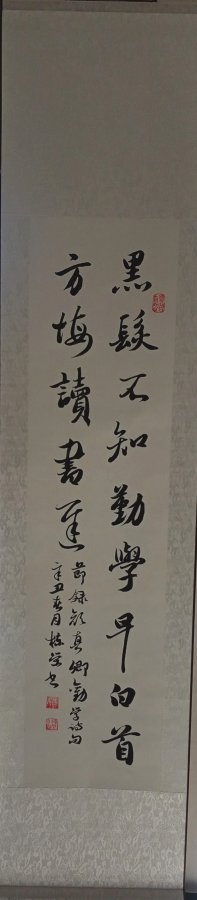 黑髮不知勤學早白首
方悔讀書遲
節録顔真卿勸學詩句
辛丑春月